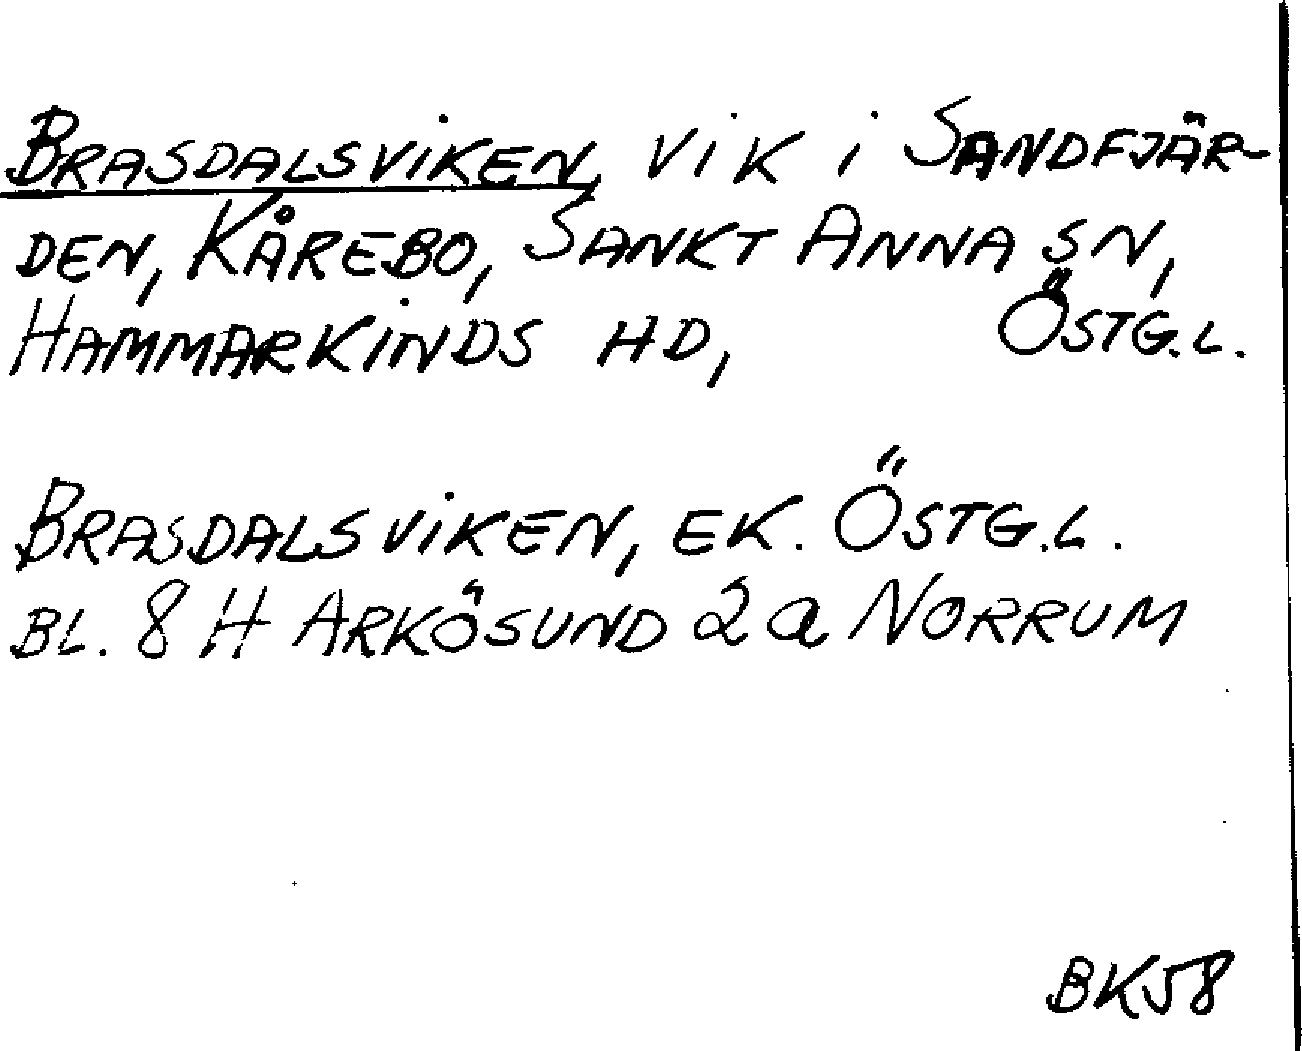 BRASDALSVIKEN, VIK I SANDFJÄR-
DEN, KÅREBO, SANKT ANNA SN,
HAMMARKINDS HD, ÖSTG.L.
BRASDALSVIKEN, EK. ÖSTG.L.
BL. 8 H ARKÖSUND 2a NORRUM
BK58